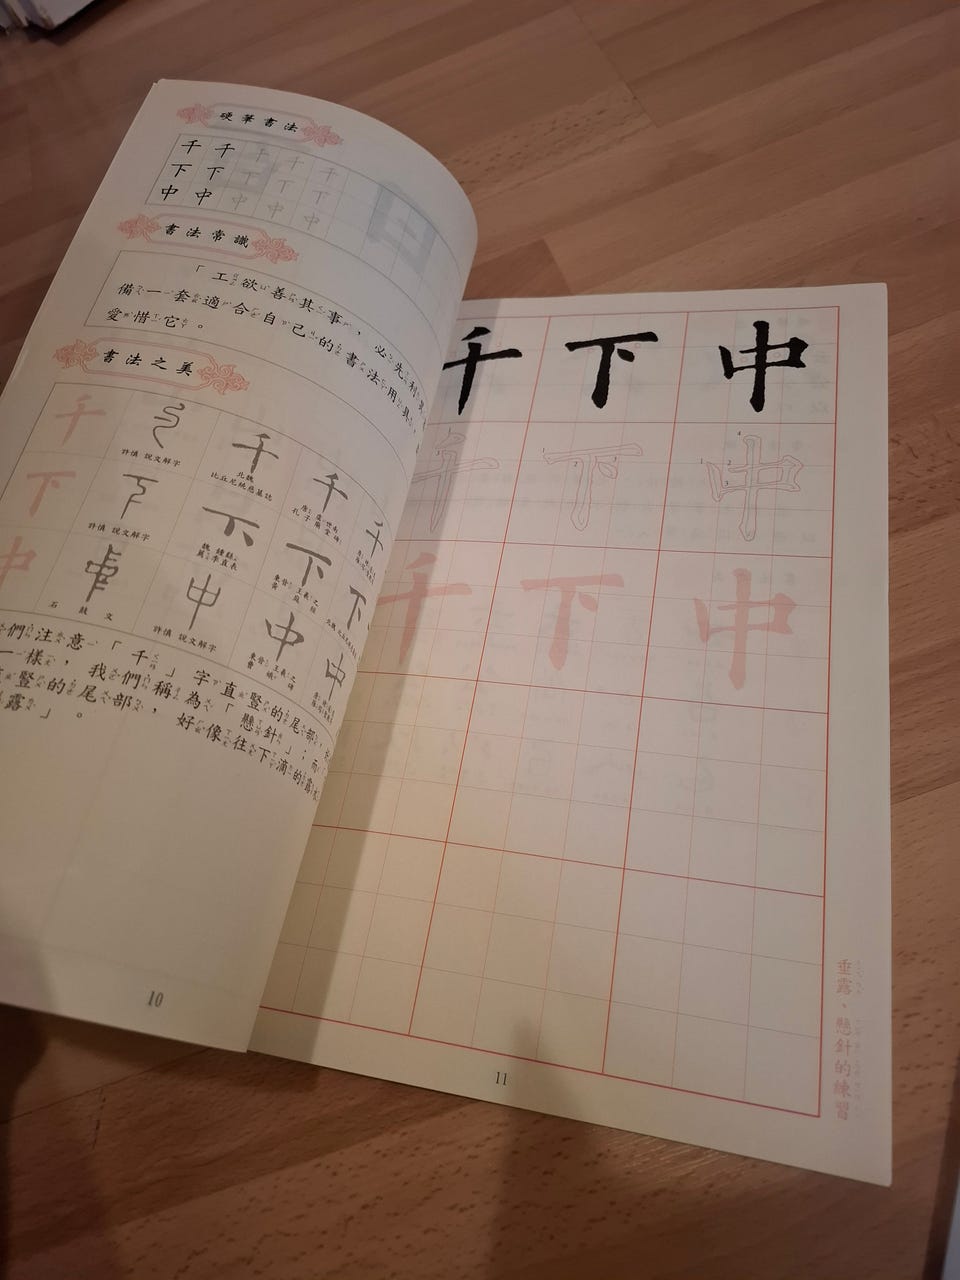 硬筆書法
千千千千千
下下下下下
中中中中中
書法常識
「工欲善其事，必先利其
備一套適合自己的書法用具，
愛惜它。
書法之美
千
許慎 說文解字
千
北魏
比丘尼統慈慶墓誌
千
唐 虞世南
孔子廟堂碑
千
下
許慎 說文解字
下
魏 鍾繇
薦季直表
下
東晉 王羲之
下
中
石鼓文
中
許慎 說文解字
中
東晉 王羲之
中
們注意「千」字直豎的尾部，
一樣，我們稱為「懸針」；而「
豎的尾部，好像往下滴的露
露」。
10
千下中
千下中
千下中
垂露、懸針的練習
11